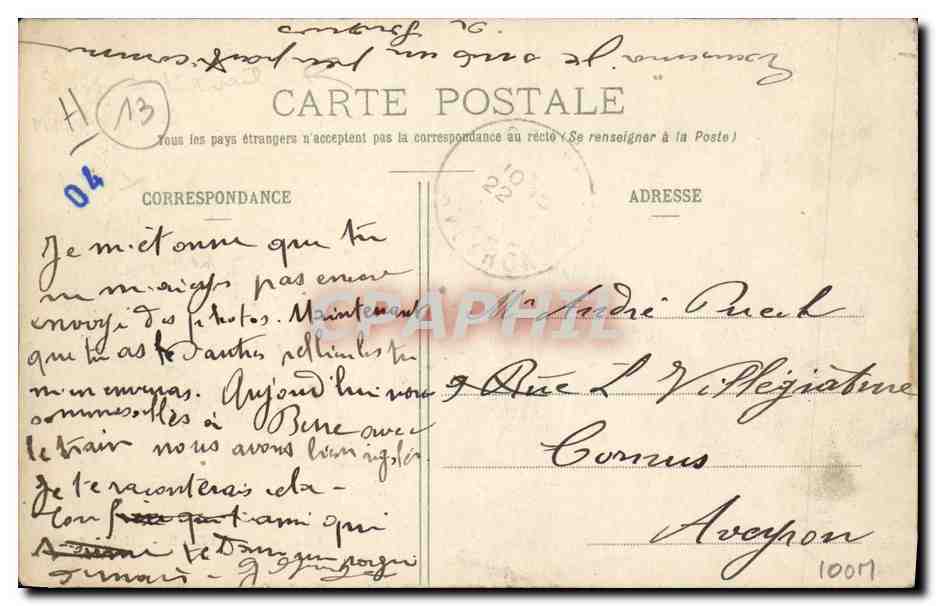 je suis un peu
à
CARTE POSTALE
H 13
Tous les pays étrangers n'acceptent pas la correspondance au recto (Se renseigner à la Poste)
04
CORRESPONDANCE
ADRESSE
10
22
Je m'étonne que tu
ne m'aies pas encore
envoyé des photos. Maintenant
que tu as d'autres pellicules tu
m'en enverras. Aujourd'hui nous
sommes allés à Berre avec
le train nous avons bien rigolé.
Je te raconterais cela -
Ton ami qui
te
CPAPHIL
Mr André Puech
9 Rue L Villégiature
Cornus
Aveyron
100M